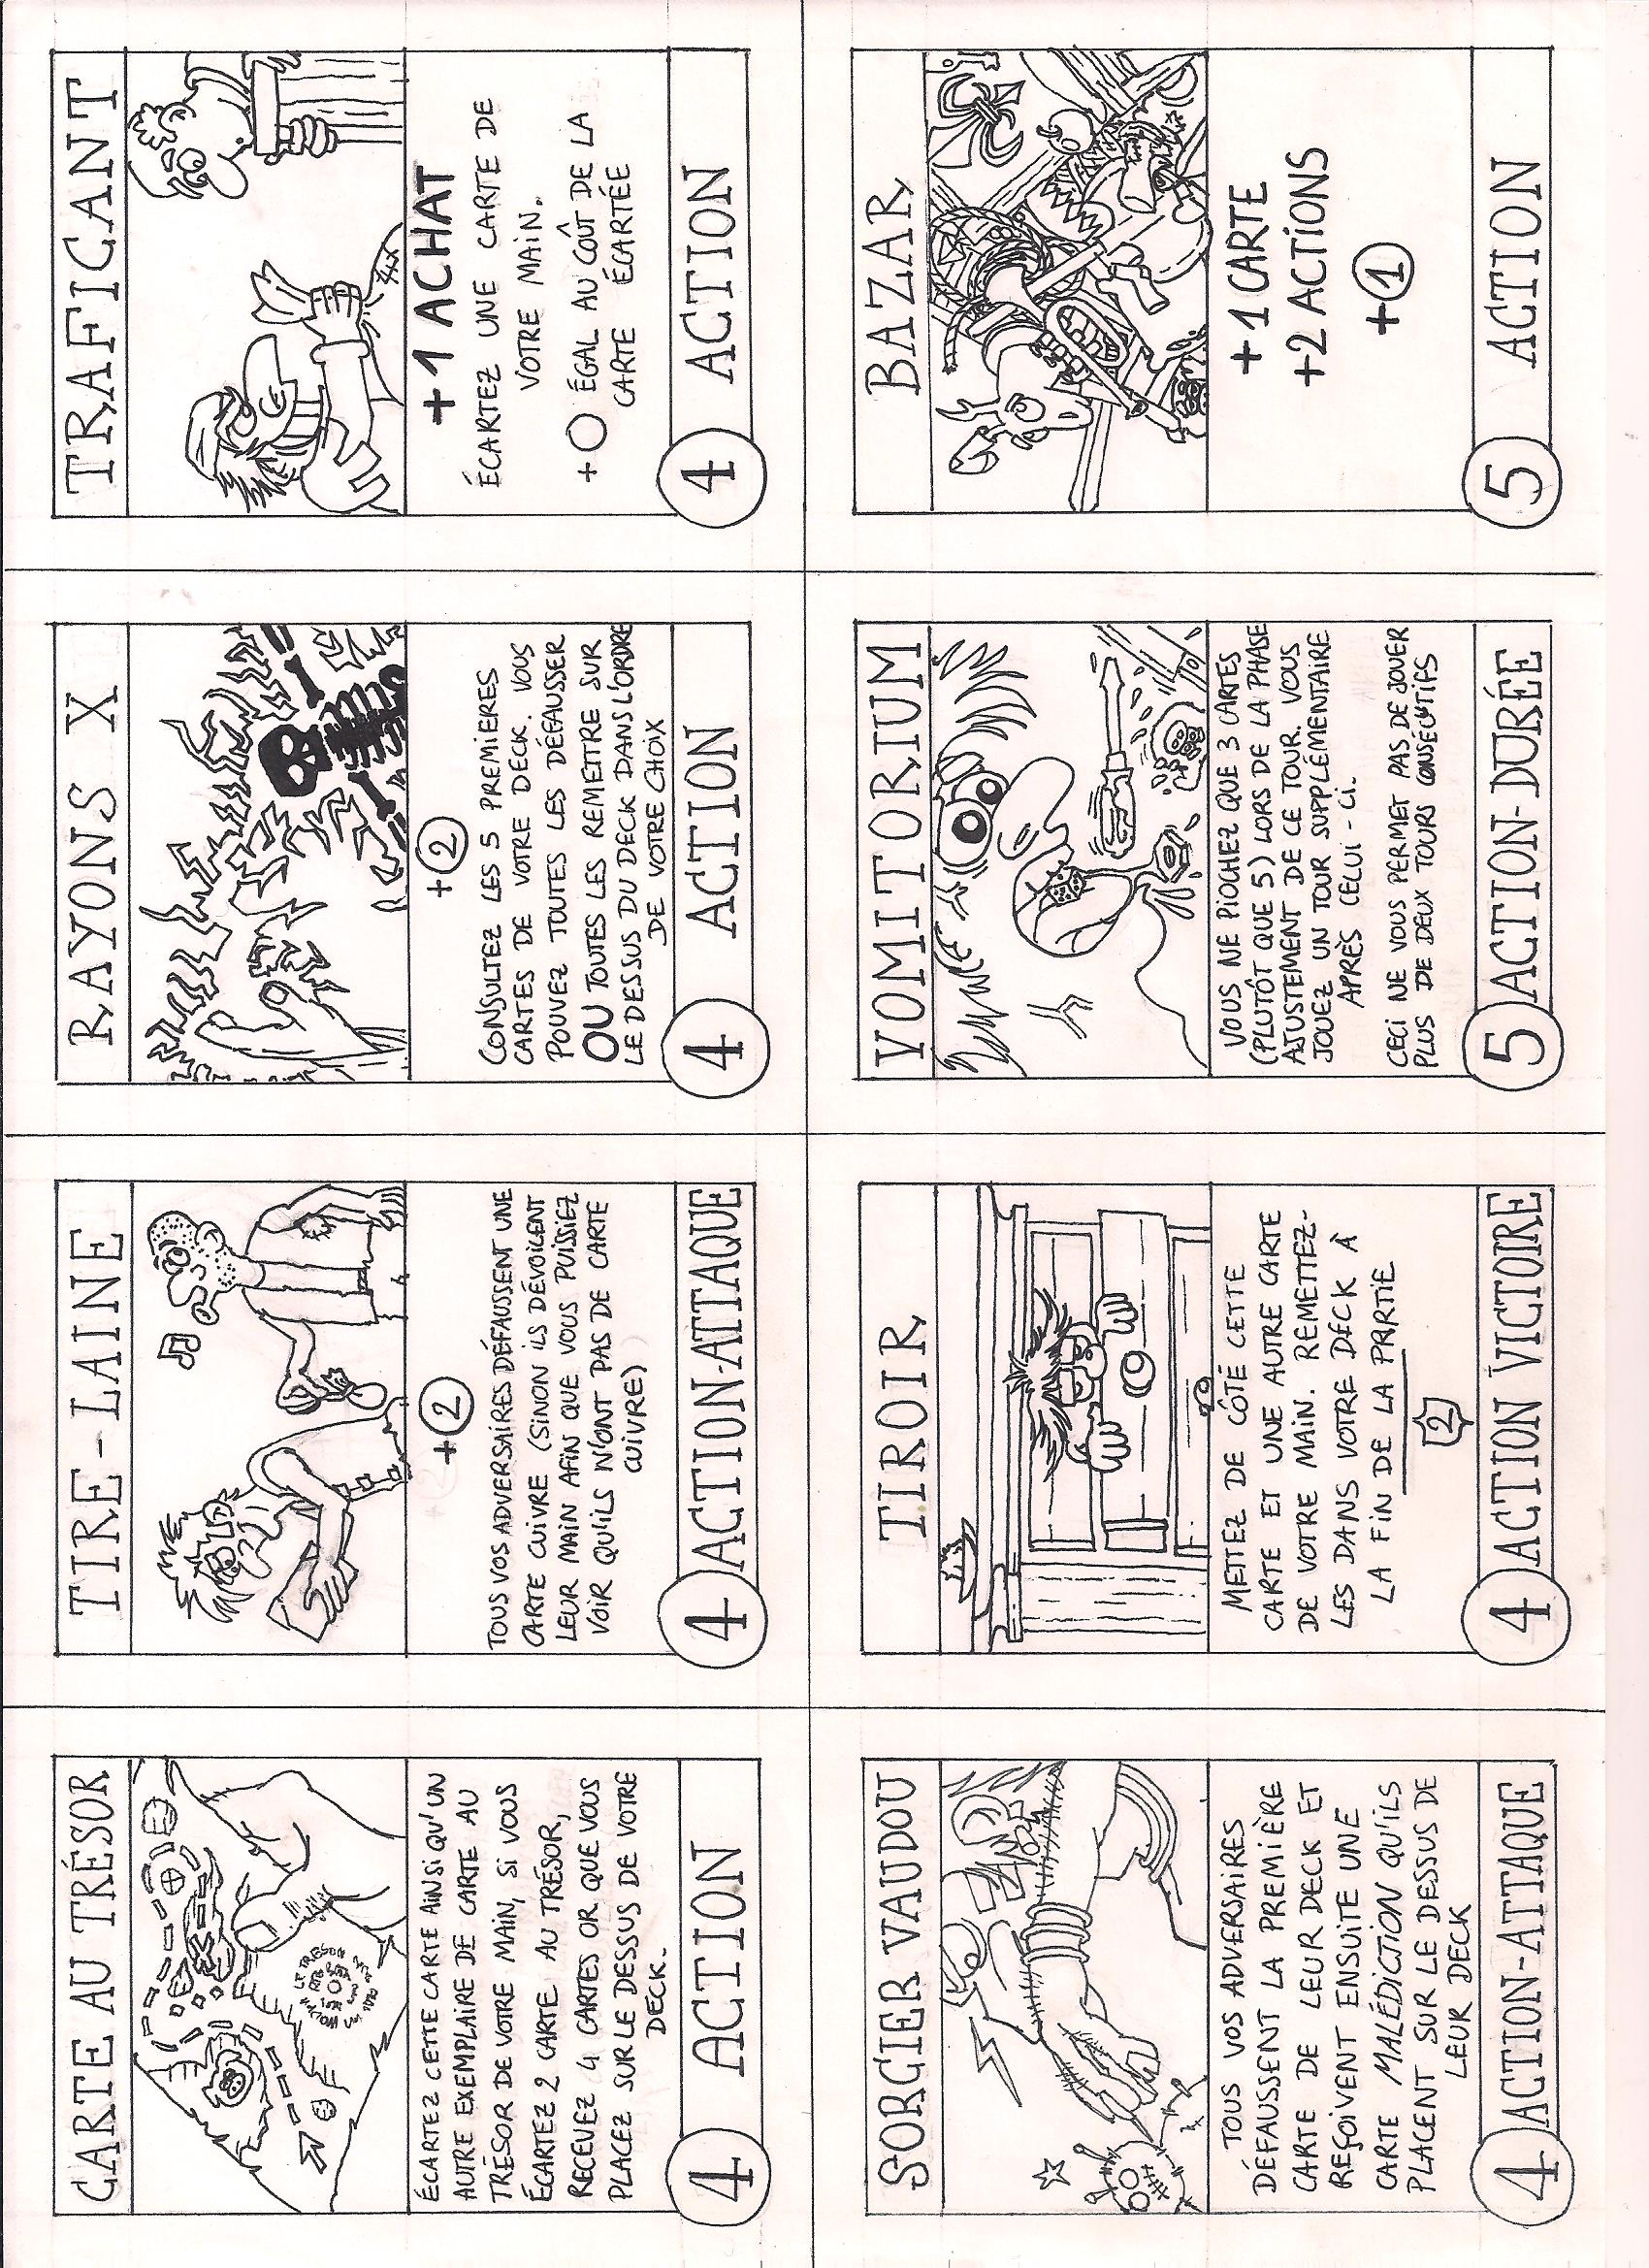 CARTE AU TRÉSOR
LE TRESOR
ÉCARTEZ CETTE CARTE AINSI QU'UN
AUTRE EXEMPLAIRE DE CARTE AU
TRÉSOR DE VOTRE MAIN, SI VOUS
ÉCARTEZ 2 CARTE AU TRÉSOR,
RECEVEZ 4 CARTES OR QUE VOUS
PLACEZ SUR LE DESSUS DE VOTRE
DECK.
4 ACTION
TIRE-LAINE
+2
TOUS VOS ADVERSAIRES DÉFAUSSENT UNE
CARTE CUIVRE (SINON ILS DÉVOILENT
LEUR MAIN AFIN QUE VOUS PUISSIEZ
VOIR QU'ILS N'ONT PAS DE CARTE
CUIVRE)
4 ACTION-ATTAQUE
RAYONS X
+2
CONSULTEZ LES 5 PREMIERES
CARTES DE VOTRE DECK. VOUS
POUVEZ TOUTES LES DÉFAUSSER
OU TOUTES LES REMETTRE SUR
LE DESSUS DU DECK DANS L'ORDRE
DE VOTRE CHOIX
4 ACTION
TRAFICANT
+1 ACHAT
ÉCARTEZ UNE CARTE DE
VOTRE MAIN.
+O ÉGAL AU COÛT DE LA
CARTE ÉCARTÉE
4 ACTION
SORCIER VAUDOU
TOUS VOS ADVERSAIRES
DÉFAUSSENT LA PREMIÈRE
CARTE DE LEUR DECK ET
REÇOIVENT ENSUITE UNE
CARTE MALÉDICTION QU'ILS
PLACENT SUR LE DESSUS DE
LEUR DECK
4 ACTION-ATTAQUE
TIROIR
METTEZ DE CÔTÉ CETTE
CARTE ET UNE AUTRE CARTE
DE VOTRE MAIN. REMETTEZ-
LES DANS VOTRE DECK À
LA FIN DE LA PARTIE
2
4 ACTION VICTOIRE
VOMITORIUM
VOUS NE PIOCHEZ QUE 3 CARTES
(PLUTÔT QUE 5) LORS DE LA PHASE
AJUSTEMENT DE CE TOUR. VOUS
JOUEZ UN TOUR SUPPLÉMENTAIRE
APRÈS CELUI-CI.
CECI NE VOUS PERMET PAS DE JOUER
PLUS DE DEUX TOURS CONSÉCUTIFS
5 ACTION-DURÉE
BAZAR
+1 CARTE
+2 ACTIONS
+1
5 ACTION